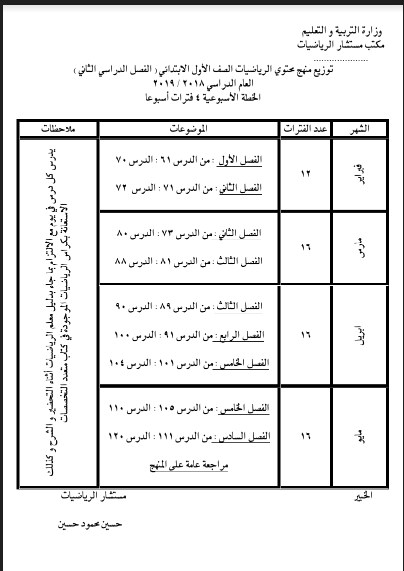 وزارة التربية و التعليم
مكتب مستشار الرياضيات
......................
توزيع منهج محتوي الرياضيات الصف الأول الابتدائي ( الفصل الدراسي الثاني )
العام الدراسي ٢٠١٨ / ٢٠١٩
الخطة الأسبوعية ٤ فترات أسبوعا
الشهر عدد الفترات الموضوعات ملاحظات
فبراير ١٢
الفصل الأول : من الدرس ٦١ : الدرس ٧٠
الفصل الثاني : من الدرس ٧١ : الدرس ٧٢
مارس ١٦
الفصل الثاني : من الدرس ٧٣ : الدرس ٨٠
الفصل الثالث : من الدرس ٨١ : الدرس ٨٨
ابريل ١٦
الفصل الثالث : من الدرس ٨٩ : الدرس ٩٠
الفصل الرابع : من الدرس ٩١ : الدرس ١٠٠
الفصل الخامس : من الدرس ١٠١ : الدرس ١٠٤
مايو ١٦
الفصل الخامس : من الدرس ١٠٥ : الدرس ١١٠
الفصل السادس : من الدرس ١١١ : الدرس ١٢٠
مراجعة عامة على المنهج
يدرس كل درس في يوم مع الالتزام بما جاء بدليل معلم الرياضيات أثناء التحضير و الشرح و كذلك
الاستعانة بكراس الرياضيات الموجودة في كتاب متعدد التخصصات
الخبير مستشار الرياضيات
حسين محمود حسين